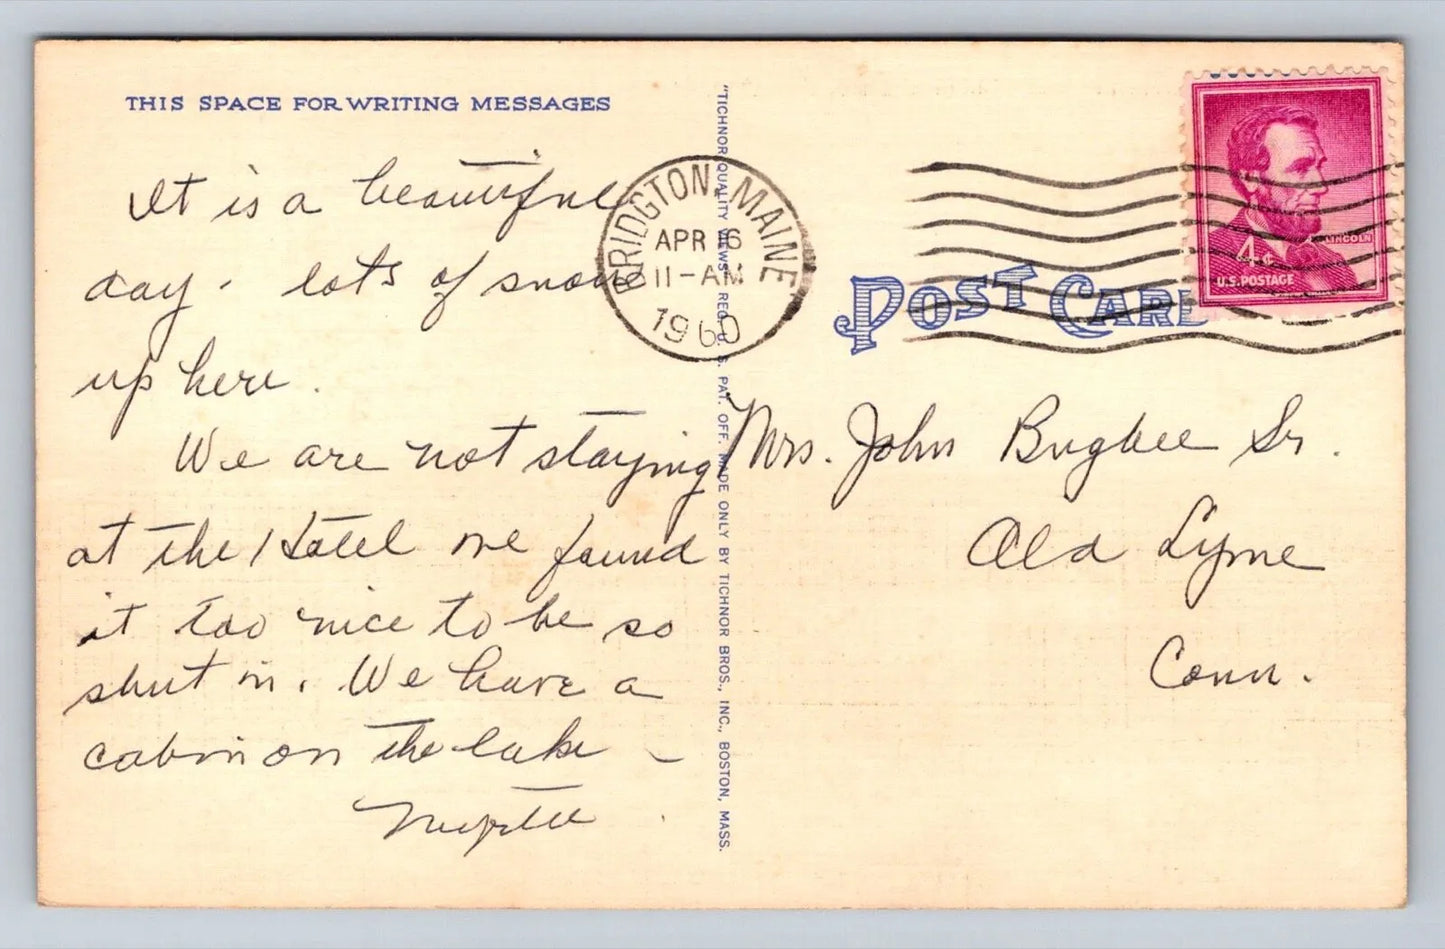 THIS SPACE FOR WRITING MESSAGES
It is a beautiful
day. lots of snow
up here.
We are not staying
at the Hotel we found
it too nice to be so
shut in. We have a
cabin on the lake –
Myrtle
"TICHNOR QUALITY VIEWS" REG. U. S. PAT. OFF. MADE ONLY BY TICHNOR BROS., INC., BOSTON, MASS.
BRIDGTON, MAINE
APR 16
11-AM
1960
POST CARD
LINCOLN
4¢
U.S. POSTAGE
Mrs. John Bugbee Sr.
Old Lyme
Conn.